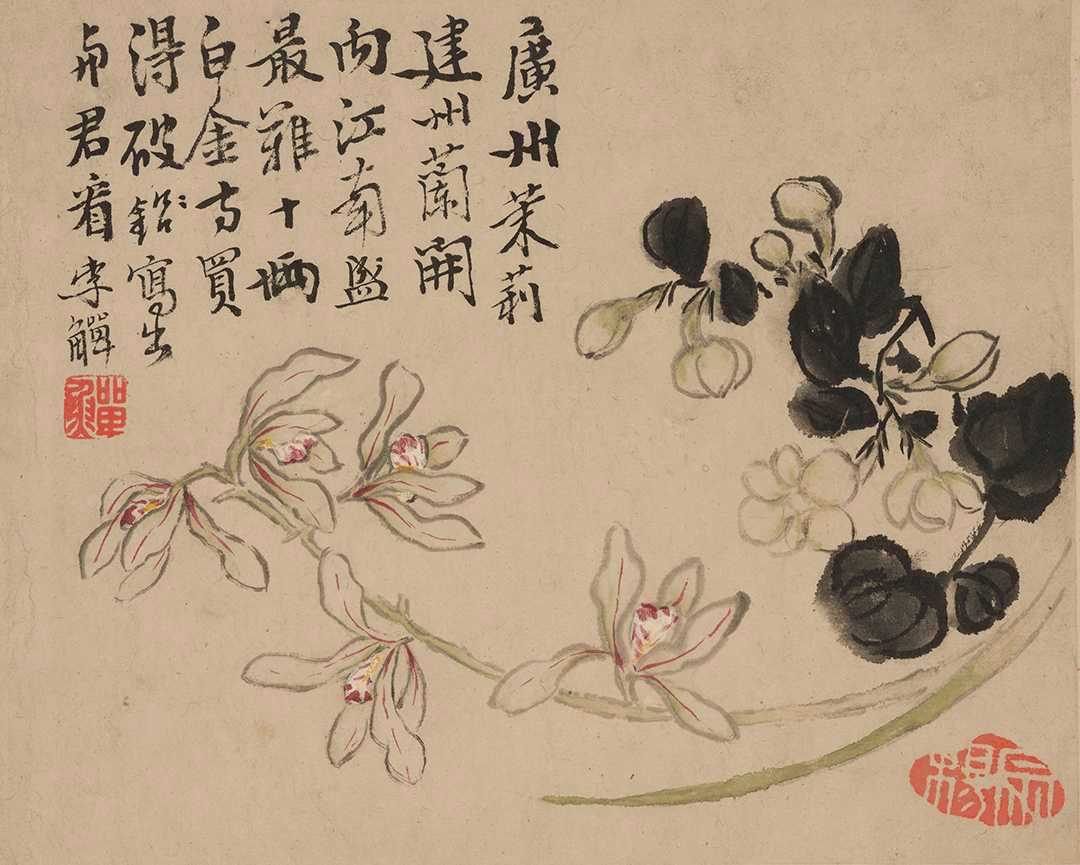 廣州茉莉
建州蘭開
向江南
最難十
白金方買
得破寫出
与君看 李鱓